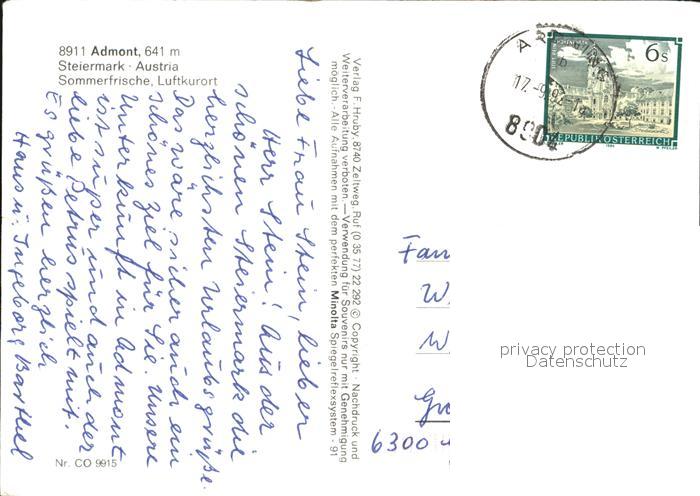 8911 Admont, 641 m
Steiermark · Austria
Sommerfrische, Luftkurort
Liebe Frau Stein, lieber
Herr Stein! Aus der
schönen Steiermark die
herzlichsten Urlaubsgrüße.
Das wäre sicher auch ein
schönes Ziel für Sie. Unsere
Unterkunft in Admont
ist super und auch der
liebe Petrus spielt mit.
Es grüßen herzlich
Hans u. Ingeborg Barthel
Nr. CO 9915
Verlag F. Hruby, 8740 Zeltweg, Ruf (0 35 77) 22 292 © Copyright · Nachdruck und
Weiterverarbeitung verboten. — Verwendung für Souvenirs nur mit Genehmigung
möglich. · Alle Aufnahmen mit dem perfekten Minolta Spiegelreflexsystem · 91
6 s
REPUBLIK ÖSTERREICH
17.-9.
Fam
W
W
6300
privacy protection
Datenschutz